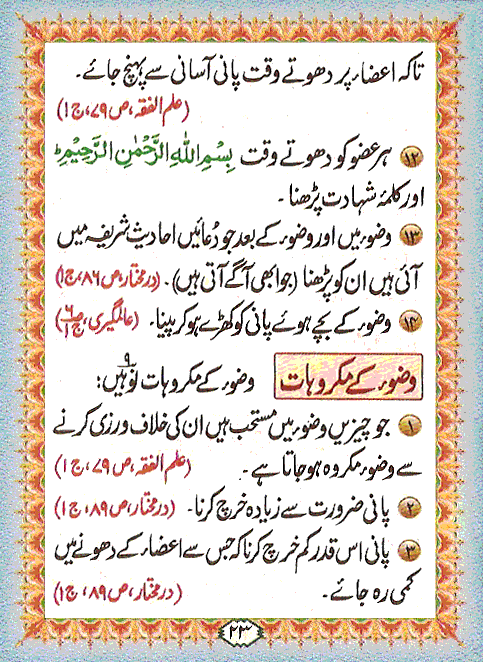 تاکہ اعضاء پر دھوتے وقت پانی آسانی سے پہنچ جائے۔
(علم الفقہ، ص ۷۹، ج ۱)
۱۲ ہر عضو کو دھوتے وقت بِسْمِ اللهِ الرَّحْمٰنِ الرَّحِيْمِ ط
اور کلمۂ شہادت پڑھنا۔
۱۳ وضوء میں اور وضوء کے بعد جو دُعائیں احادیث شریفہ میں
آئی ہیں ان کو پڑھنا (جو ابھی آگے آتی ہیں)۔ (درمختار، ص ۸۶، ج ۱)
۱۴ وضوء کے بچے ہوئے پانی کو کھڑے ہو کر پینا۔ (عالمگیری، ص ۶ ج ۱)
وضوء کے مکروہات وضوء کے مکروہات نو ۹ ہیں:
۱ جو چیزیں وضوء میں مستحب ہیں ان کی خلاف ورزی کرنے
سے وضوء مکروہ ہو جاتا ہے۔ (علم الفقہ، ص ۷۹، ج ۱)
۲ پانی ضرورت سے زیادہ خرچ کرنا۔ (درمختار، ص ۸۹، ج ۱)
۳ پانی اس قدر کم خرچ کرنا کہ جس سے اعضاء کے دھونے میں
کمی رہ جائے۔ (درمختار، ص ۸۹، ج ۱)
۲۳